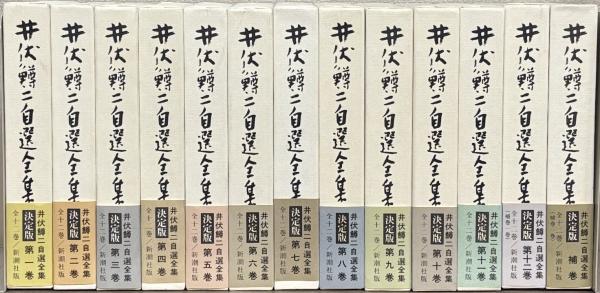 井伏鱒二自選全集
井伏鱒二自選全集
決定版 第一巻
全十二巻/新潮社版
井伏鱒二自選全集
井伏鱒二自選全集
決定版 第二巻
全十二巻/新潮社版
井伏鱒二自選全集
井伏鱒二自選全集
決定版 第三巻
全十二巻/新潮社版
井伏鱒二自選全集
井伏鱒二自選全集
決定版 第四巻
全十二巻/新潮社版
井伏鱒二自選全集
井伏鱒二自選全集
決定版 第五巻
全十二巻/新潮社版
井伏鱒二自選全集
井伏鱒二自選全集
決定版 第六巻
全十二巻/新潮社版
井伏鱒二自選全集
井伏鱒二自選全集
決定版 第七巻
全十二巻/新潮社版
井伏鱒二自選全集
井伏鱒二自選全集
決定版 第八巻
全十二巻/新潮社版
井伏鱒二自選全集
井伏鱒二自選全集
決定版 第九巻
全十二巻/新潮社版
井伏鱒二自選全集
井伏鱒二自選全集
決定版 第十巻
全十二巻/新潮社版
井伏鱒二自選全集
井伏鱒二自選全集
決定版 第十一巻
全十二巻/新潮社版
井伏鱒二自選全集
井伏鱒二自選全集
決定版 第十二巻
全十二巻
新潮社版
井伏鱒二自選全集
井伏鱒二自選全集
決定版 補巻
全十二巻
新潮社版